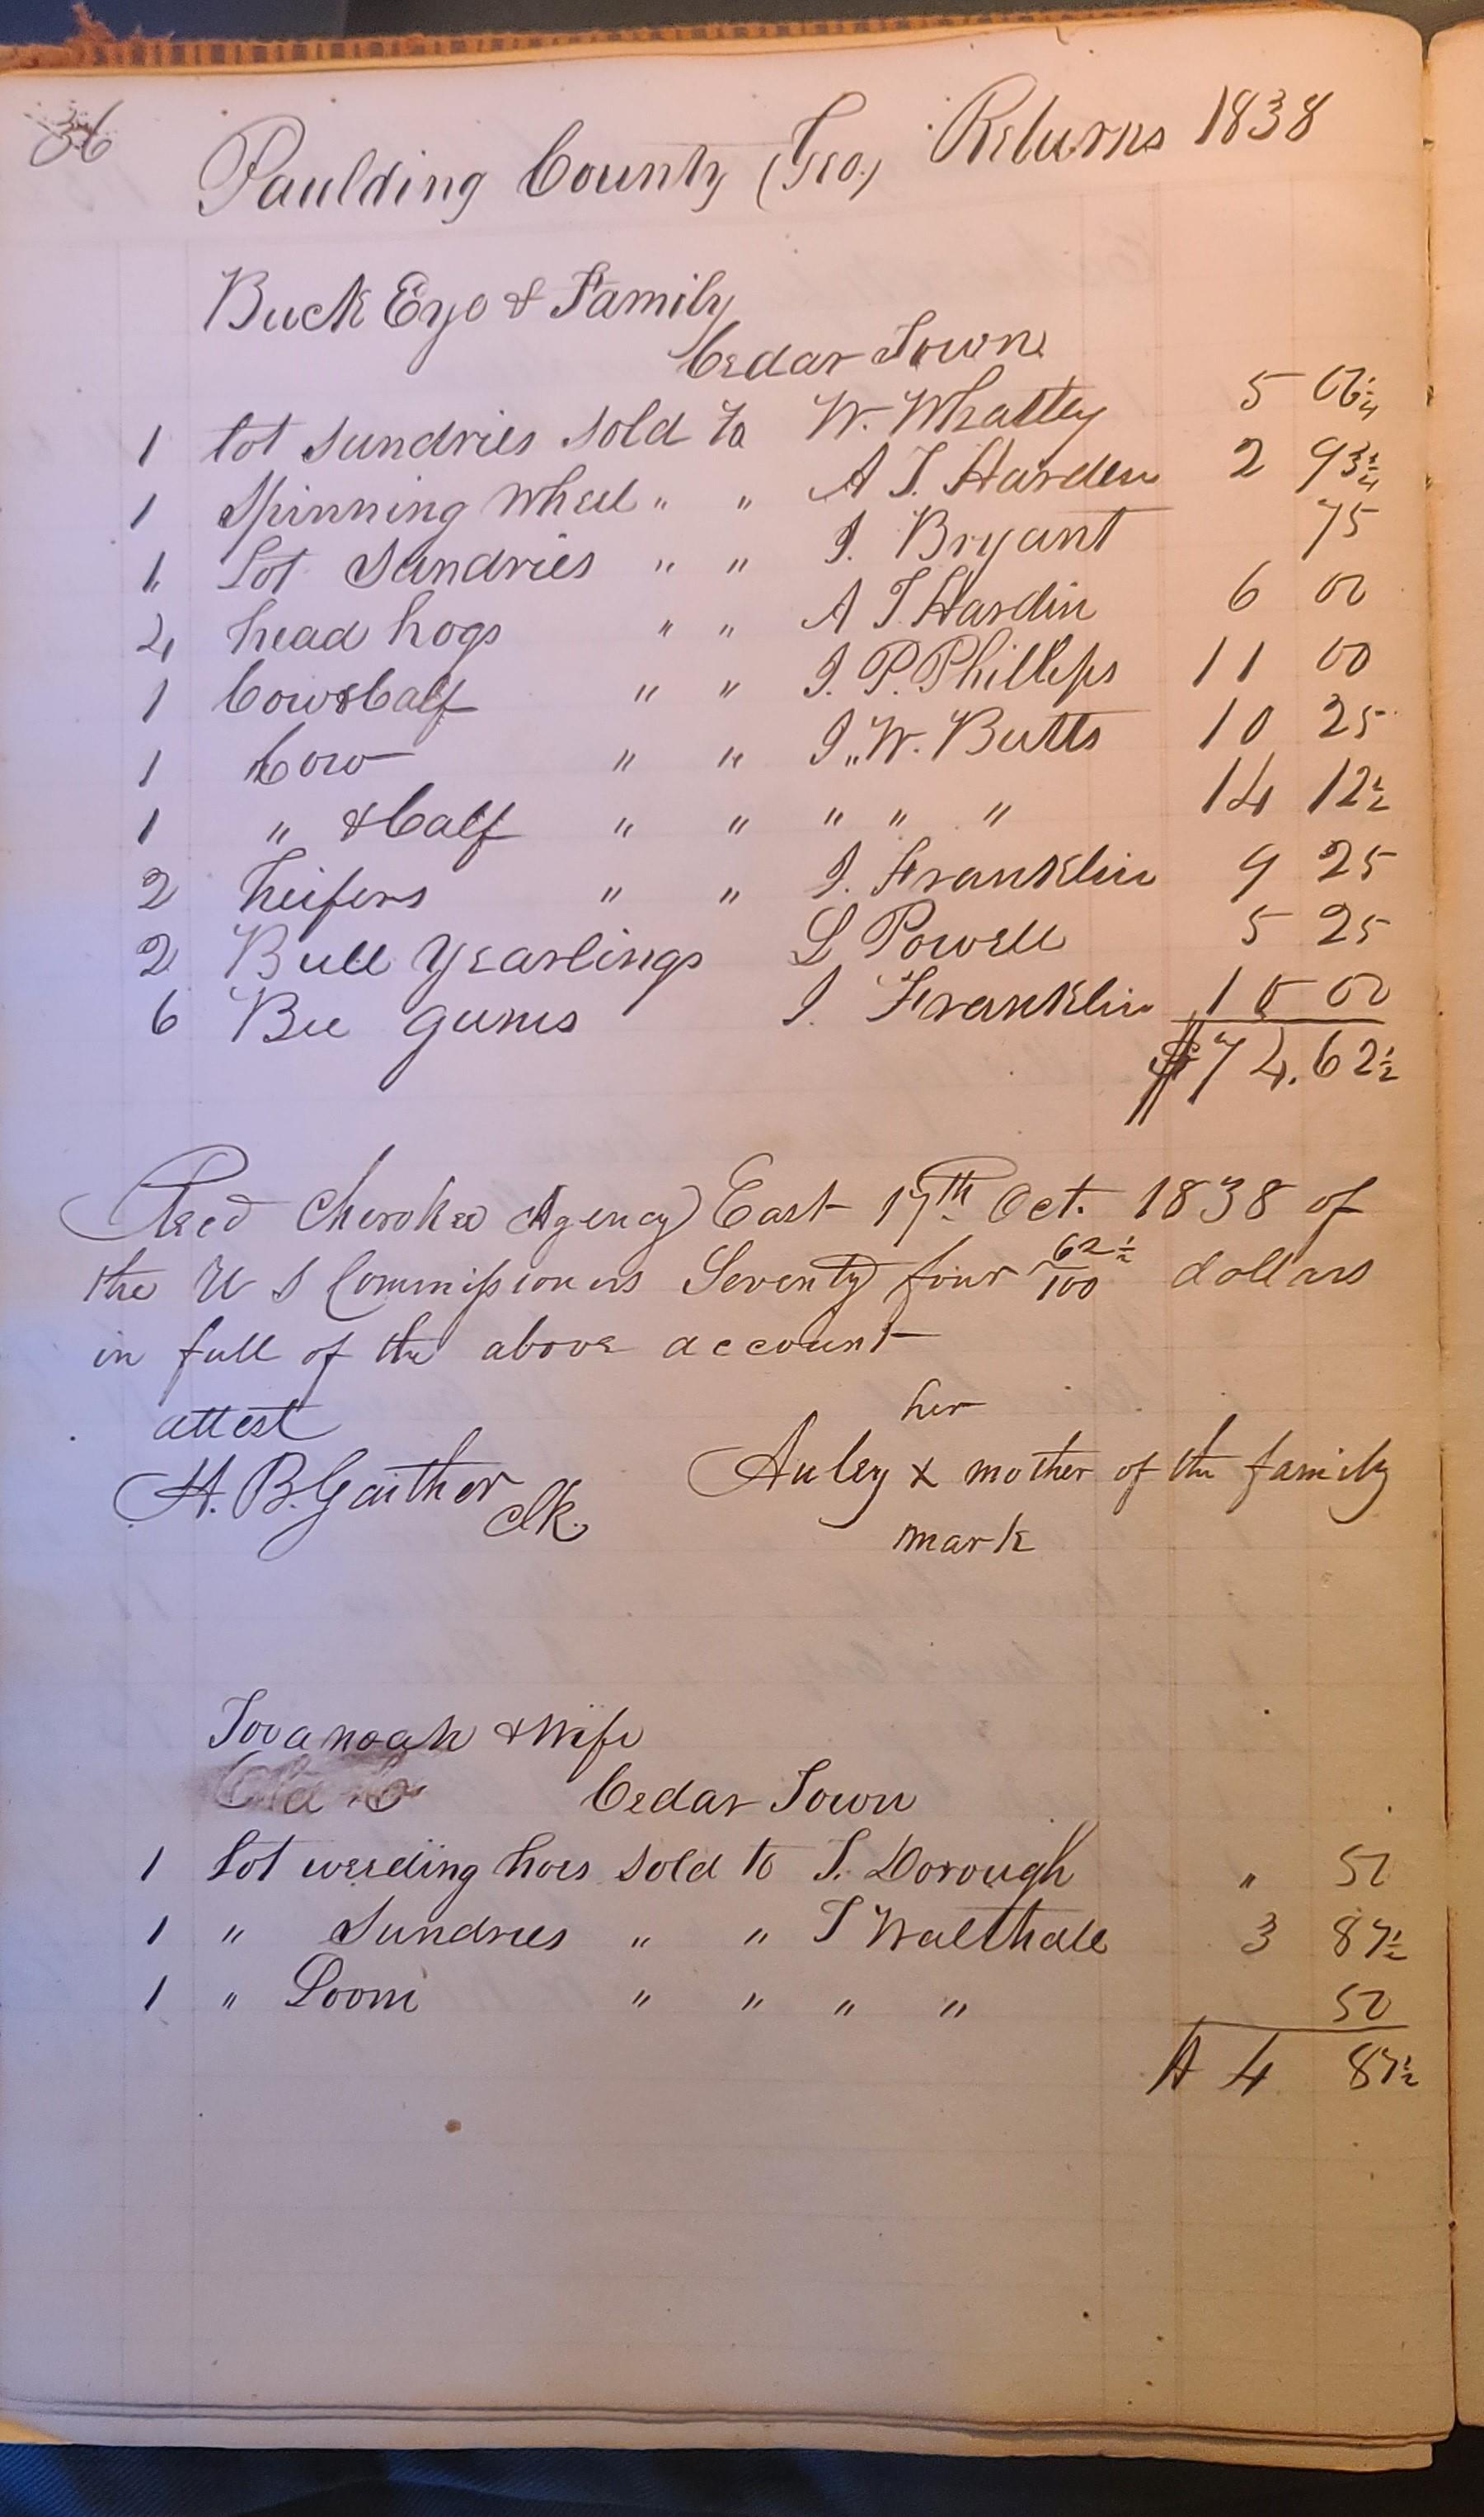 36
Paulding County (Geo.) Returns 1838
Buck Eye & Family
Cedar Town
1 Lot Sundries sold to W. Whatley 5 06¼
1 Spinning Wheel " " A T. Harden 2 93¾
1 Lot Sundries " " J. Bryant 75
4 head hogs " " A T. Hardin 6 00
1 Cow & Calf " " J. P. Phillips 11 00
1 Cow " " J. W. Butts 10 25
1 " & Calf " " " " " 14 12½
2 heifers " " J. Franklin 9 25
2 Bull Yearlings L Powell 5 25
6 Bee gums J. Franklin 10 00
$74.62½
Recd Cherokee Agency East 17th Oct. 1838 of
the U S Commissioners Seventy four 62½/100 dollars
in full of the above account
attest her
H. B. Gaither Clk. Auley x mother of the family
mark
Tovanoah & Wife
Cedar Town
1 Lot weeding hoes sold to T. Dorough " 50
1 " Sundries " " T Walthall 3 87½
1 " Loom " " " " 50
$ 4 87½